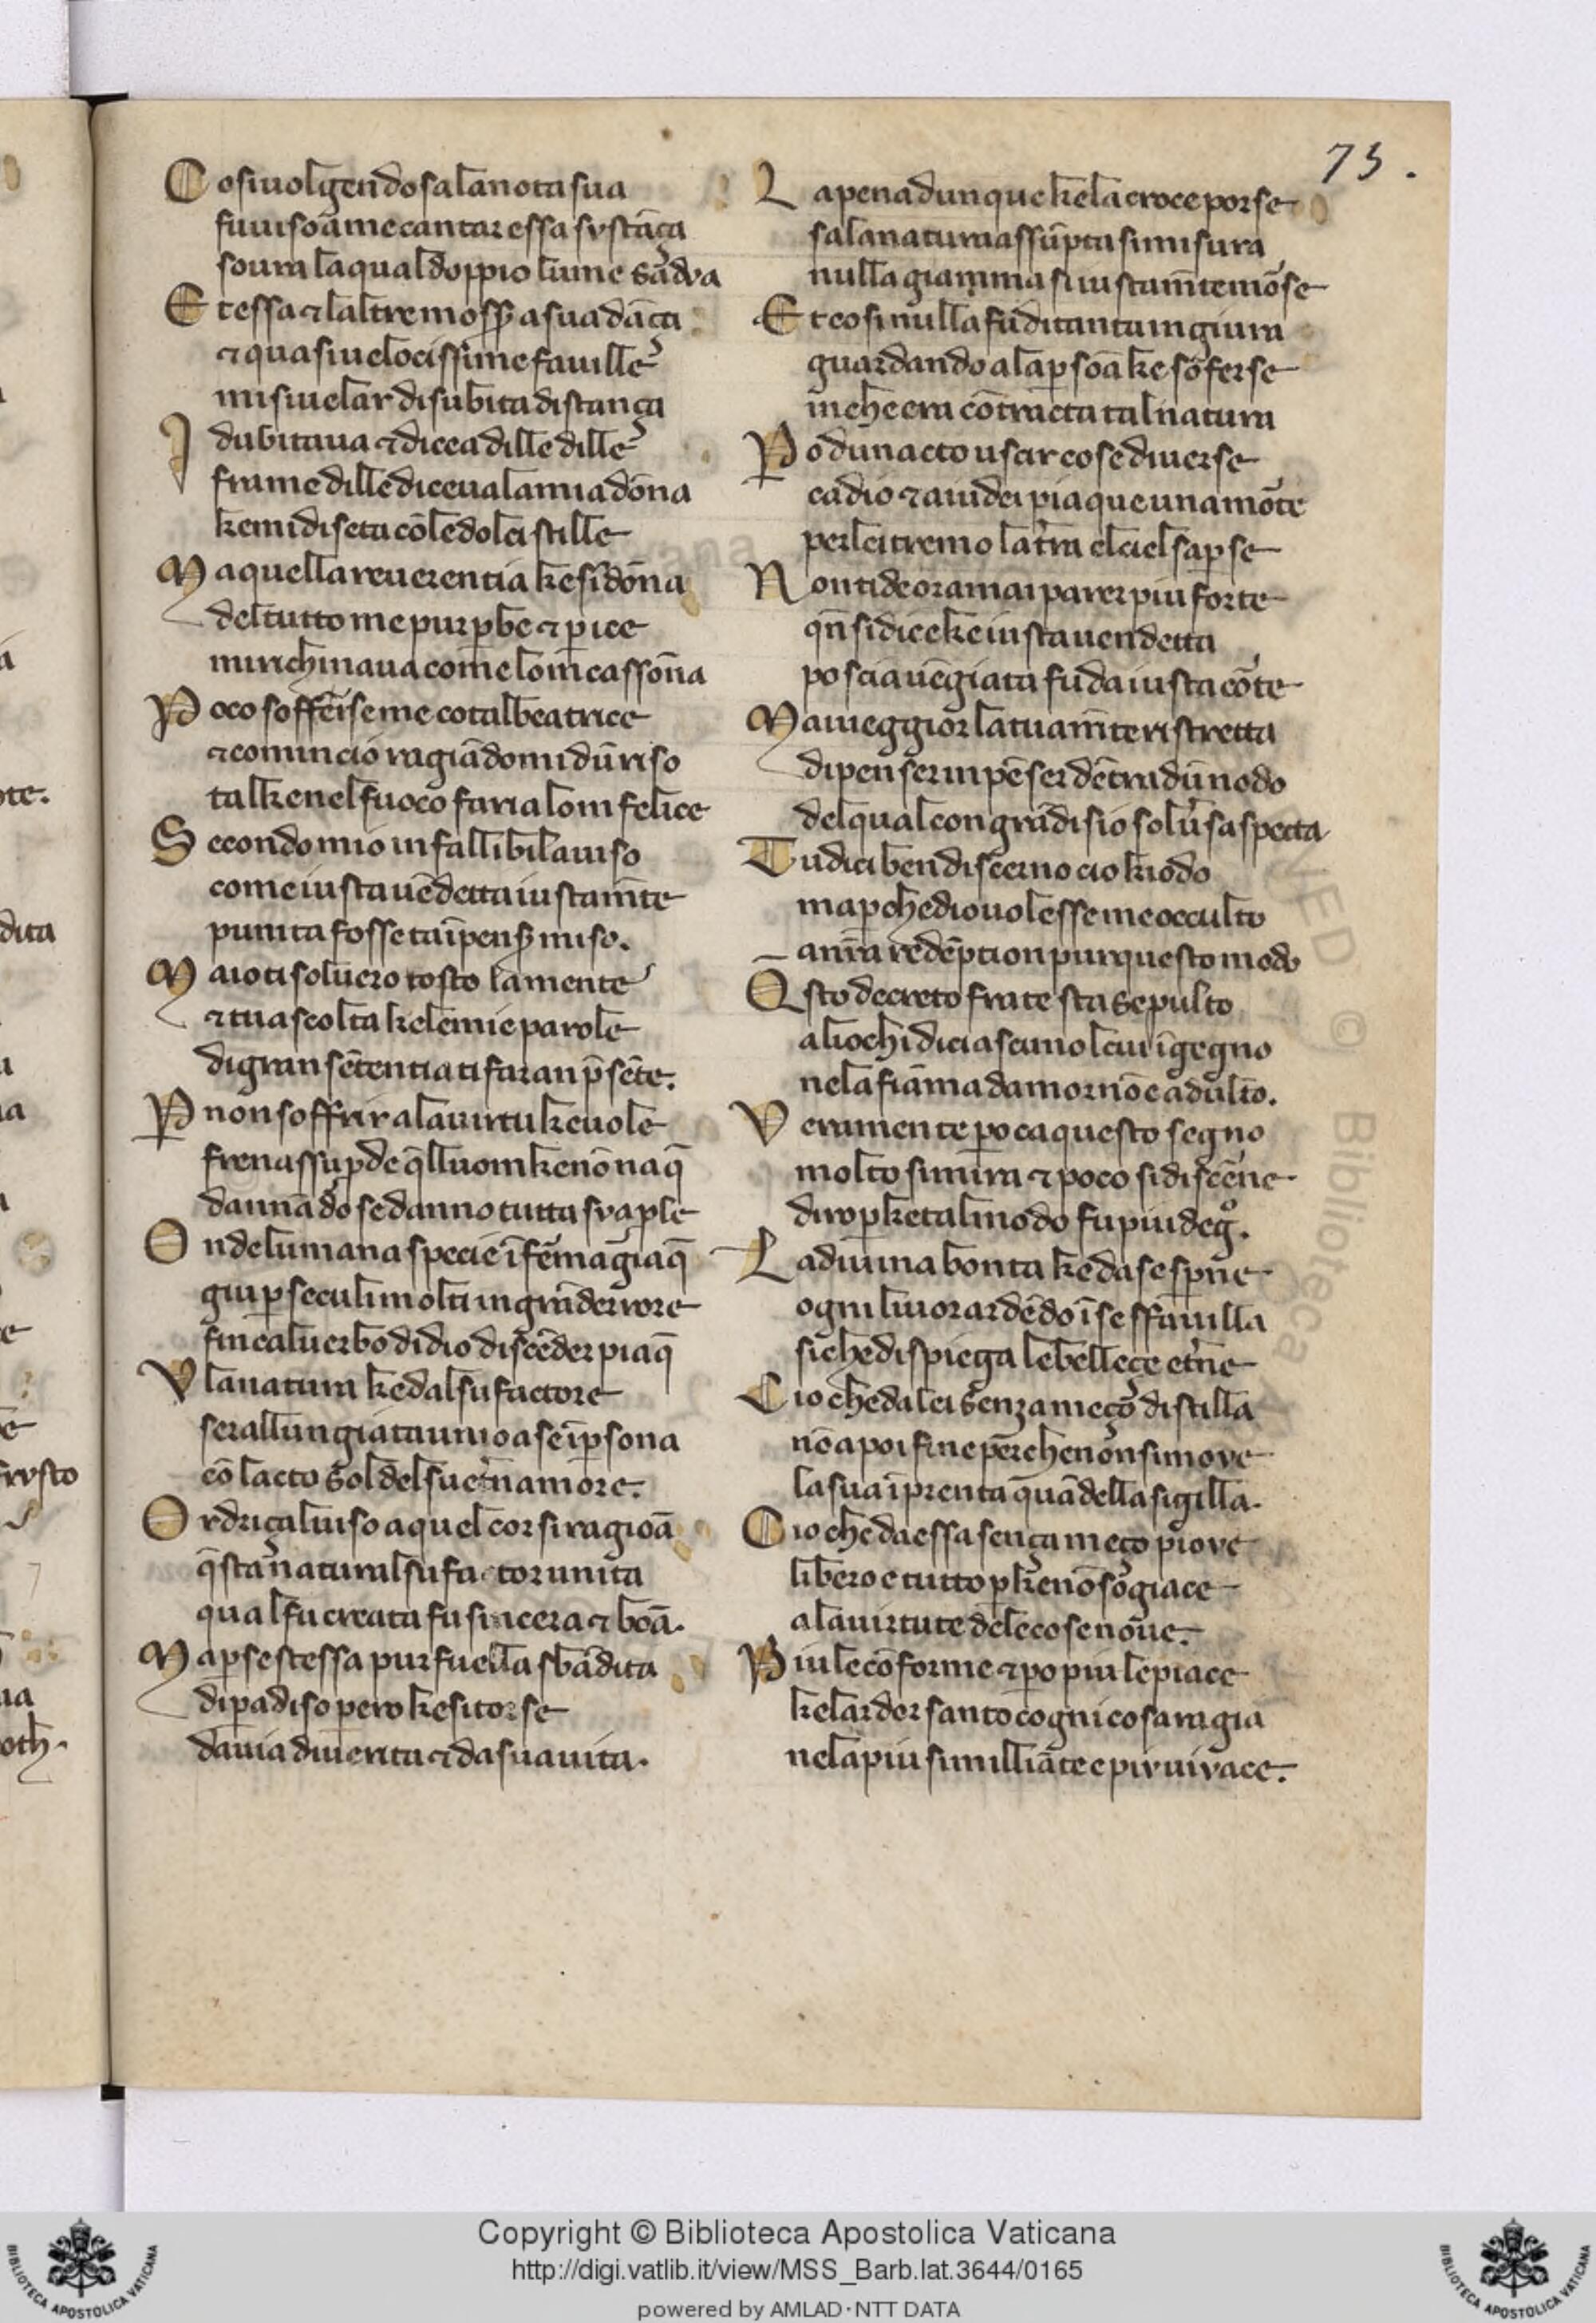 73.
Cosiuolgendosalanota sua
fuuisoāmecantar essa svstāça
soura laqual doppio lume sādva
Et essa ⁊ laltre mosser̄ a sua dāça
⁊ quasi uelocissime fauille
misiuelar di subita distança
I dubitaua ⁊ dicea dille dille
fra me dille diceua lamia dōna
kemi diseta cōle dolci stille
Ma quella reuerentia ke sīdōna
del tutto me pur p be ⁊ p ice
mirichinaua come lom̄ cassōna
Poco soffērse me cotal beatrice
⁊ comincio ragiādomi dūriso
tal kenel fuoco faria lom felice
Secondo mio infallibil auiso
come iusta uēdetta iustam̄te
punita fosse ta īpens̄ miso.
Ma io ti soluero tosto la mente
⁊ tu ascolta ke le mie parole
di gran sētentia ti faran p̄sēte.
P non soffrir ala uirtu ke uole
freno assup de q̄lluom ke nō naq̄
dannādo se danno tutta sva ple
Onde lumana specie īfēma giaq̄
giu p seculi molti in grād errore
fin cal uerbo didio discēder piaq̄
V la natura ke dal su factore
serallungiata unio a se īpsona
cō lacto sol del su et̄namore.
Or driçal uiso a quel cor si ragioā
q̄sta natural su factor unita
qual fu creata fu sincera ⁊ boā.
Ma p se stessa pur fuella sbādita
di padiso pero ke si torse
da uia di uerita ⁊ da sua uita.
La pena dunque ke la croce porse
sala natura assūpta si misura
nulla giamma si iustam̄te mōse
Et cosi nulla fu di tanta ingiura
guardando ala psoā ke sōferse
in che era cōtracta tal natura
Po dunacto uscir cose diuerse
ca dio ⁊ a iudei piaque una mōte
per lei tremo lat̄ra elciel sap se
Non ti de oramai parer piu forte
qn̄ si dice ke iusta uendetta
poscia uēgiata fu da iusta cōte
Ma i ueggior la tua m̄te ristretta
di penser in pēser dētra dū nodo
del qual con grā disio solū saspecta
Tu dici ben discerno cio kiodo
ma p che dio uolesse me occulto
a n̄ra redēption pur questo modo
Qsto decreto frate sta sepulto
ali ochi di ciascuno lcui īgegno
nela fiāma damor nō e adulto.
Veramente po ca questo segno
molto si mira ⁊ poco si discēne
diro p ke tal modo fu piu degº.
La diuina bonta ke da se sp̄ne
ogni liuor ardēdo ī se sfauilla
si che dispiega le belleçe et̄ne
Cio che da lei senza meço distilla
nō a poi fine perche non si move
la sua īprenta quādella sigilla.
Cio che da essa sença meço piove
libero e tutto p ke nō sogiace
ala uirtute dele cose noue.
Piu le cōforme ⁊ po piu le piace
kelardor santo cogni cosa ragia
nela piu simillliāte e piv uivace.
Copyright © Biblioteca Apostolica Vaticana
http://digi.vatlib.it/view/MSS_Barb.lat.3644/0165
powered by AMLAD·NTT DATA